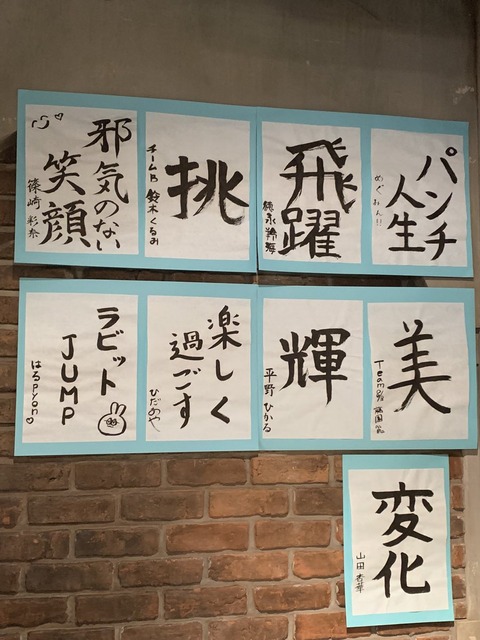 パンチ
人生
めぐみん!!
飛躍
徳永羚海
挑
チームB 鈴木くるみ
邪気のない
笑顔
篠崎 彩奈
美
Team8/
輝
平野 ひかる
楽しく
過ごす
ひだあや
ラビット
JUMP
はるpyon♡
変化
山田 杏華